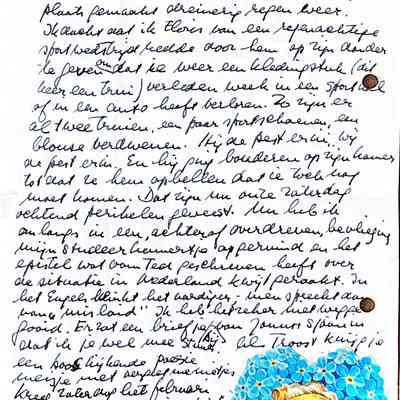 plaats gemaakt dreinerig regen weer.
Ik dacht dat ik Floris van een regenachtige
sportwedstrijd redde door hem op zijn donder
te geven omdat ie weer een kledingstuk (dit
keer een trui) verleden week in een sport
of in een auto heeft verloren. Zo zijn er
al twee truien, een paar sportschoenen, een
blouse verdwenen. Hij de pest erin, wij
de pest erin. En hij ging bonderen op zijn kamer
tot dat ze hem opbellen dat ie toch nog
moet komen. Dat zijn nu onze zaterdag
ochtend perikelen geweest. Nu heb ik
onlangs in een achteraf overdreven bevlieging
mijn studeerkamertje opgeruimd en het
epistel wat van Ted geschreven heeft over
de situatie in Nederland kwijt geraakt. In
het Engels klinkt het aardiger: men spreekt dan
van "mislaid". Ik heb het zeker niet wegge
gooid. Er zat een briefje van bij
dat ik je wel mee stuur. Als troost krijg je
een boos kijkende poesje
meisje met vergeet me nietjes
Kreeg zaterdag het februari